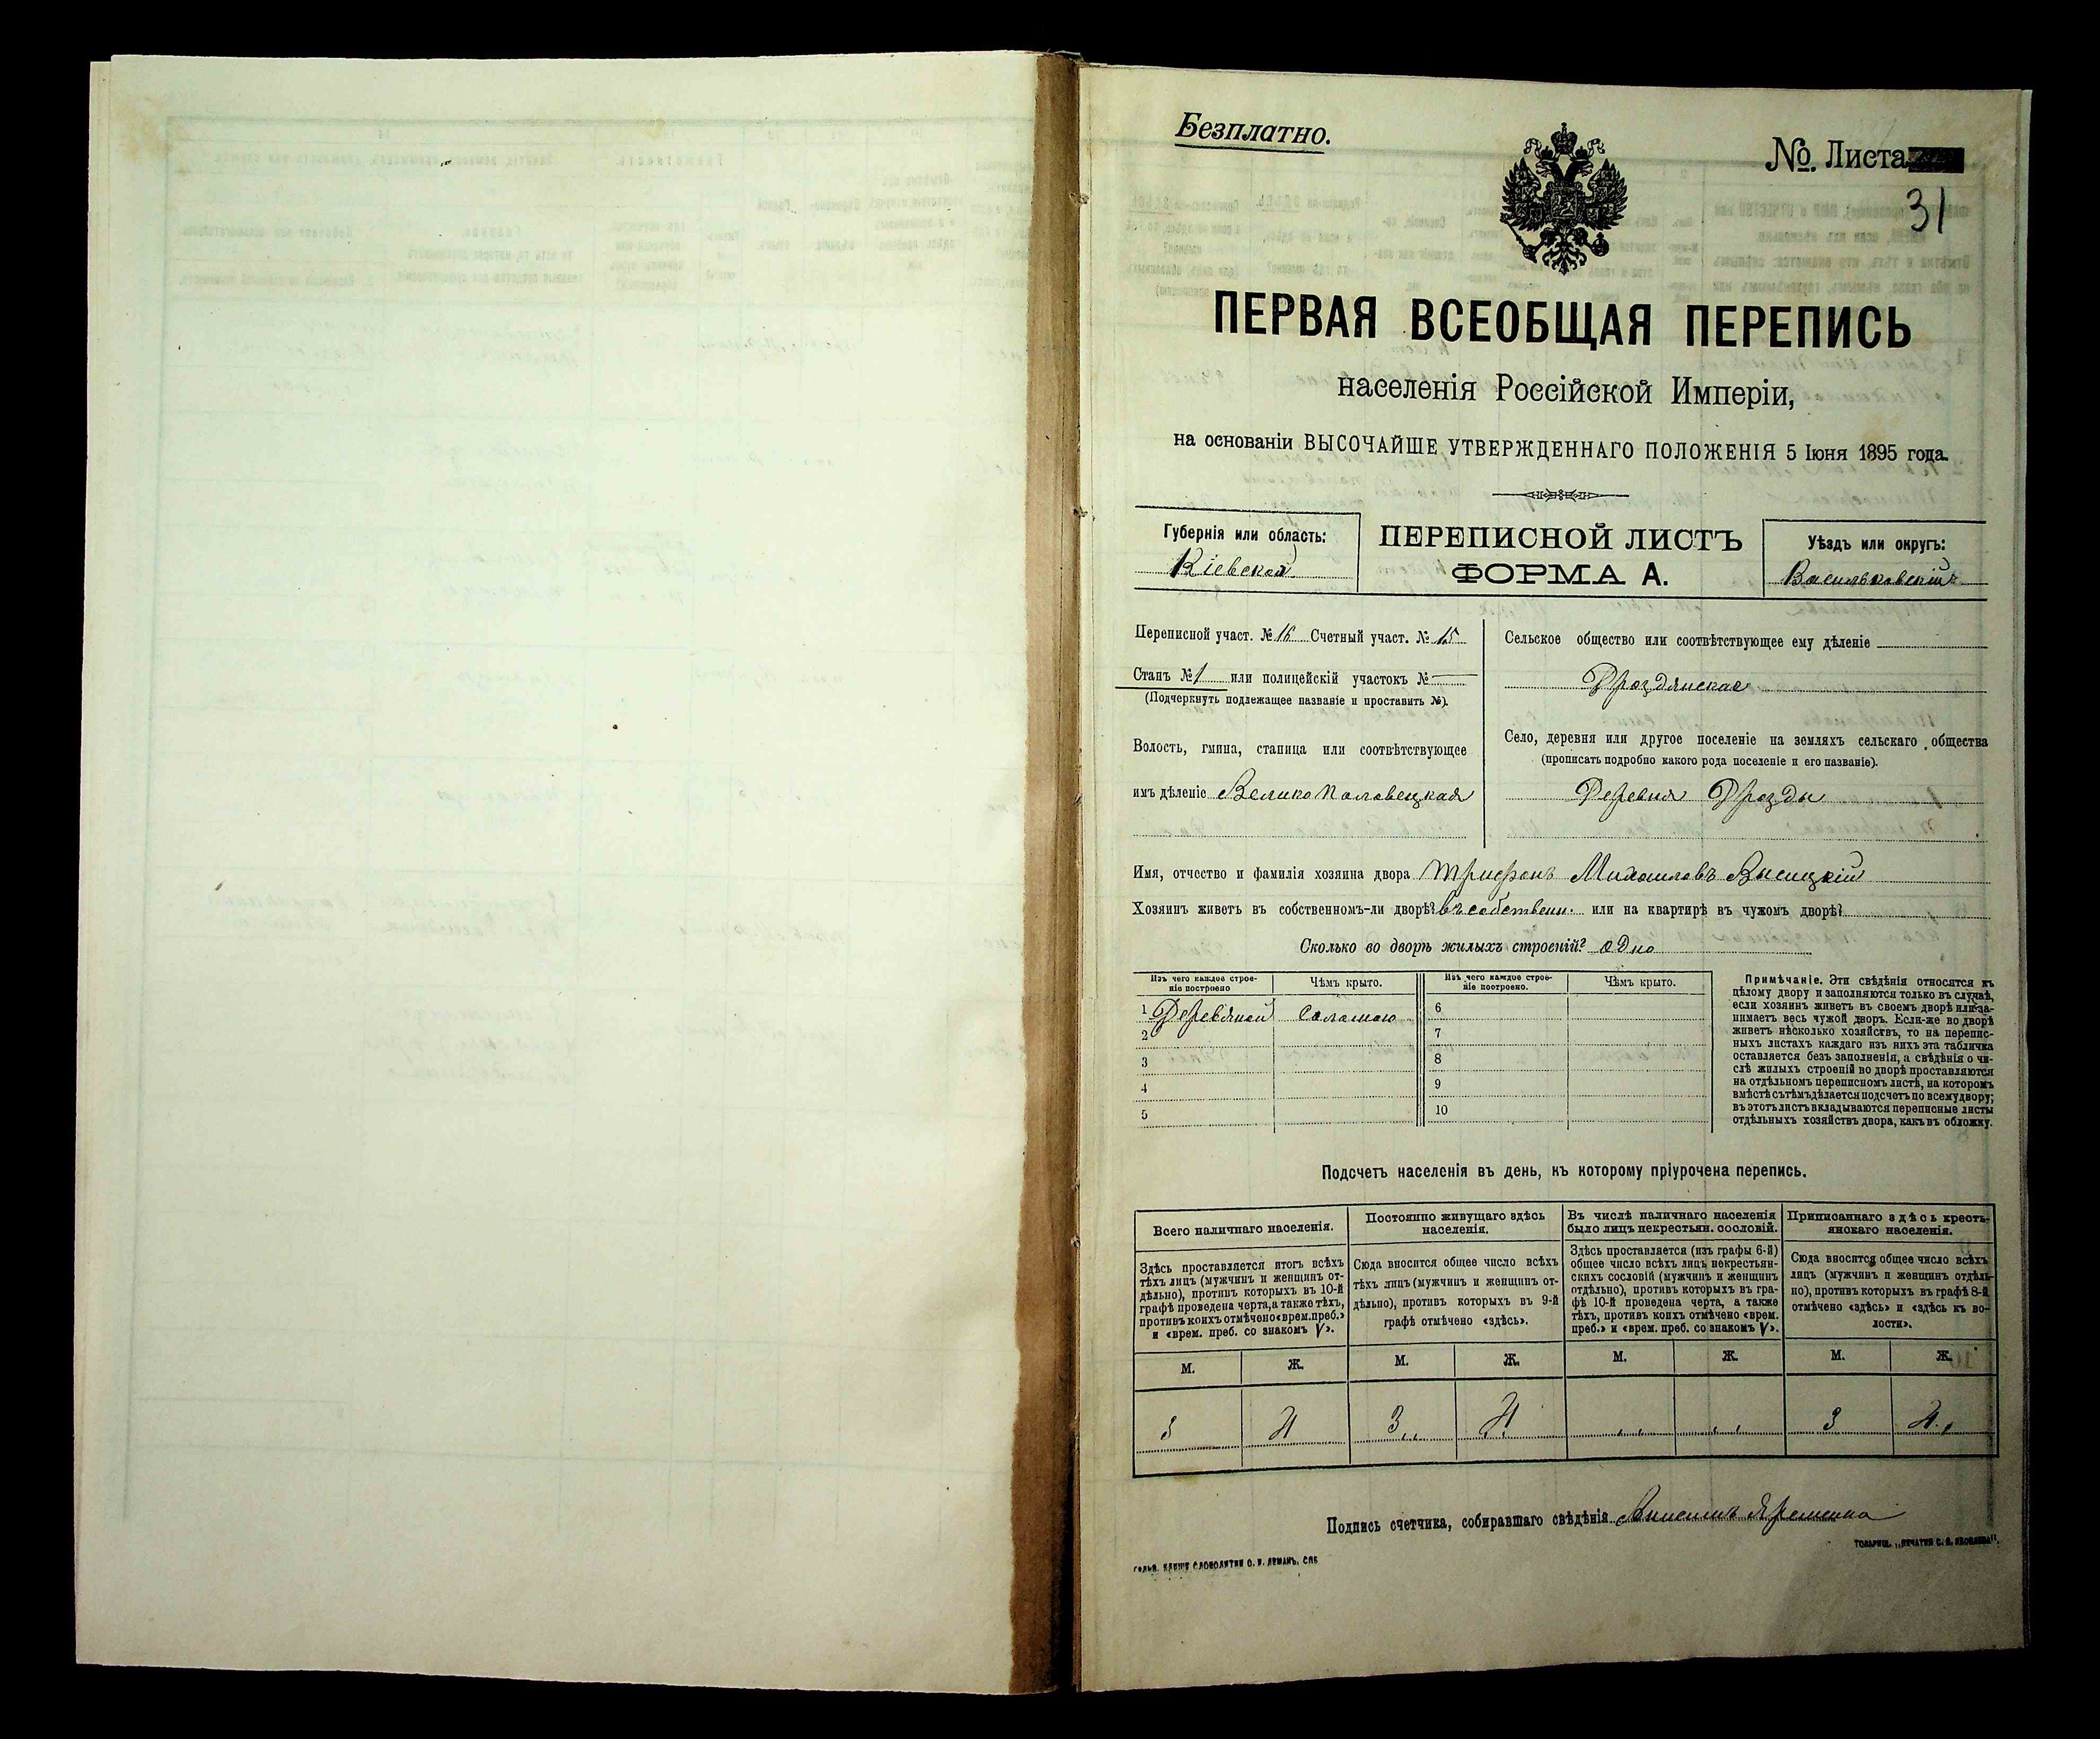 Безплатно.
№ Листа
31
ПЕРВАЯ ВСЕОБЩАЯ ПЕРЕПИСЬ
населенія Россійской Имперіи,
на основаніи ВЫСОЧАЙШЕ УТВЕРЖДЕННАГО ПОЛОЖЕНІЯ 5 Іюня 1895 года.
Губернія или область:
Кіевская
ПЕРЕПИСНОЙ ЛИСТЪ
ФОРМА А.
Уѣздъ или округъ:
Васильковскій
Переписной участ. № 16 Счетный участ. № 15
Станъ № 1 или полицейскій участокъ № —
(Подчеркнуть подлежащее названіе и проставить №).
Волость, гмина, станица или соотвѣтствующее
имъ дѣленіе Великополовецкая
Сельское общество или соотвѣтствующее ему дѣленіе
Дроздянская
Село, деревня или другое поселеніе на земляхъ сельскаго общества
(прописать подробно какого рода поселеніе и его названіе).
Деревня Дрозды
Имя, отчество и фамилія хозяина двора Трифонъ Михаиловъ
Хозяинъ живетъ въ собственномъ-ли дворѣ? въ собственн. или на квартирѣ въ чужомъ дворѣ?
Сколько во дворѣ жилыхъ строеній? одно
Изъ чего каждое строе-
ніе построено
Чѣмъ крыто.
Изъ чего каждое строе-
ніе построено.
Чѣмъ крыто.
1 Деревяной Соломою
2
3
4
5
6
7
8
9
10
Примѣчаніе. Эти свѣдѣнія относятся къ
цѣлому двору и заполняются только въ случаѣ,
если хозяинъ живетъ въ своемъ дворѣ или за-
нимаетъ весь чужой дворъ. Если-же во дворѣ
живетъ нѣсколько хозяйствъ, то на перепис-
ныхъ листахъ каждаго изъ нихъ эта табличка
оставляется безъ заполненія, а свѣдѣнія о чи-
слѣ жилыхъ строеній во дворѣ проставляются
на отдѣльномъ переписномъ листѣ, на которомъ
вмѣстѣ съ тѣмъ дѣлается подсчетъ по всему двору;
въ этотъ листъ вкладываются переписные листы
отдѣльныхъ хозяйствъ двора, какъ въ обложку.
Подсчетъ населенія въ день, къ которому пріурочена перепись.
Всего наличнаго населенія.
Здѣсь проставляется итогъ всѣхъ
тѣхъ лицъ (мужчинъ и женщинъ от-
дѣльно), противъ которыхъ въ 10-й
графѣ проведена черта, а также тѣхъ,
противъ коихъ отмѣчено «врем. преб.»
и «врем. преб. со знакомъ V».
Постоянно живущаго здѣсь
населенія.
Сюда вносится общее число всѣхъ
тѣхъ лицъ (мужчинъ и женщинъ от-
дѣльно), противъ которыхъ въ 9-й
графѣ отмѣчено «здѣсь».
Въ числѣ наличнаго населенія
было лицъ некрестьян. сословій.
Здѣсь проставляется (изъ графы 6-й)
общее число всѣхъ лицъ некрестьян-
скихъ сословій (мужчинъ и женщинъ
отдѣльно), противъ которыхъ въ гра-
фѣ 10-й проведена черта, а также
тѣхъ, противъ коихъ отмѣчено «врем.
преб.» и «врем. преб. со знакомъ V».
Приписаннаго здѣсь кресть-
янскаго населенія.
Сюда вносится общее число всѣхъ
лицъ (мужчинъ и женщинъ отдѣль-
но), противъ которыхъ въ графѣ 8-й
отмѣчено «здѣсь» и «здѣсь къ во-
лости».
М. Ж. М. Ж. М. Ж. М. Ж.
3 4 3 „ 4 „ „ „ 3 4
Подпись счетчика, собиравшаго свѣдѣнія
ТОВАРИЩ. „ПЕЧАТНИ С. П. ЯКОВЛЕВА“.
СЛОВОЛИТНИ О. И. ЛЕМАНЪ, СПБ